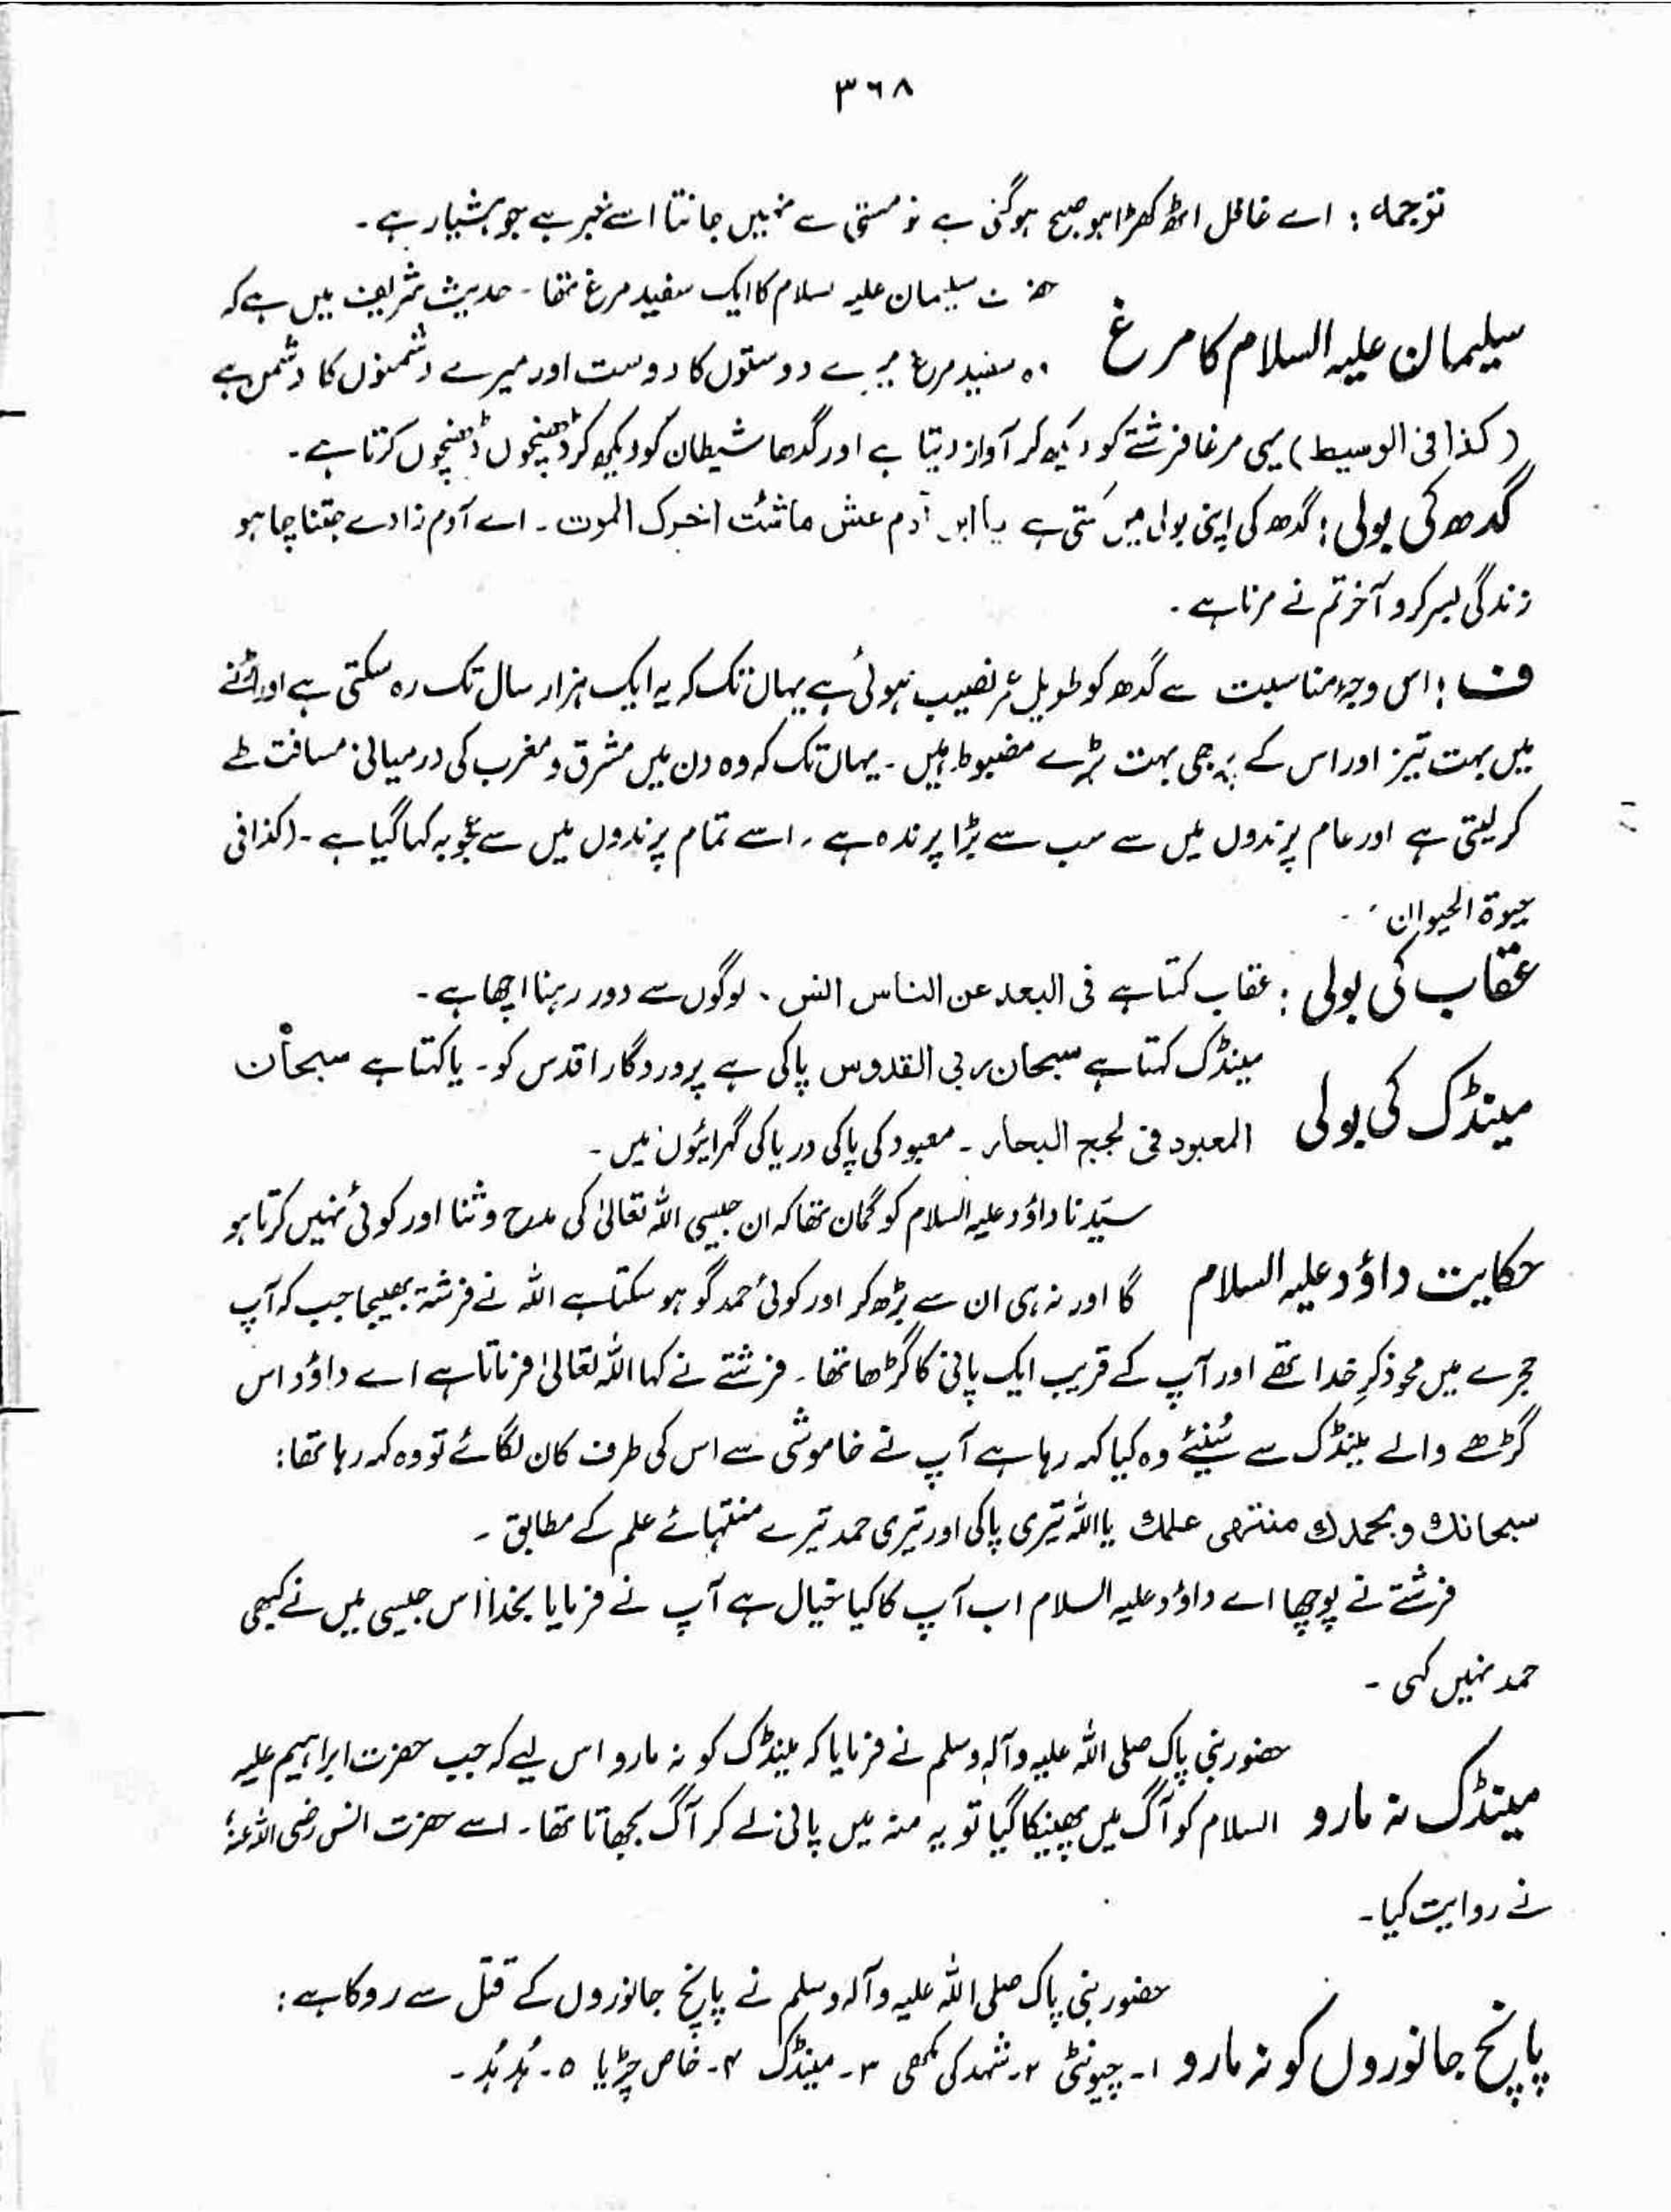 ۳۶۸
ترجمہ: اے غافل اٹھ کھڑا ہو صبح ہوگئی ہے تو مستی سے نہیں جانتا اسے خبر ہے جو ہشیار ہے۔
سلیمان علیہ السلام کا مرغ
سلیمان علیہ السلام کا ایک سفید مرغ تھا۔ حدیث شریف میں ہے کہ
سفید مرغ میرے دوستوں کا دوست اور میرے دشمنوں کا دشمن ہے
(کذا فی الوسیط) یہی مرغا فرشتے کو دیکھ کر آواز دیتا ہے اور گدھا شیطان کو دیکھ کر ڈھینچوں ڈھینچوں کرتا ہے۔
گدھ کی بولی: گدھ کی اپنی بولی میں کہتی ہے یا ابن آدم عش ماشئت اخرک الموت۔ اے آدم زادے جتنا چاہو
زندگی بسر کرو آخر تم نے مرنا ہے۔
ف: اس وجہ مناسبت سے گدھ کو طویل عمر نصیب ہوئی ہے یہاں تک کہ یہ ایک ہزار سال تک رہ سکتی ہے اور اڑنے
میں بہت تیز اور اس کے پر بھی بہت بڑے مضبوط ہیں۔ یہاں تک کہ وہ دن میں مشرق و مغرب کی درمیانی مسافت طے
کر لیتی ہے اور عام پرندوں میں سے سب سے بڑا پرندہ ہے۔ اسے تمام پرندوں میں سے عجوبہ کہا گیا ہے۔ (کذا فی
حیوۃ الحیوان
عقاب کی بولی: عقاب کہتا ہے فی البعد عن الناس انس۔ لوگوں سے دور رہنا اچھا ہے۔
مینڈک کی بولی
مینڈک کہتا ہے سبحان ربی القدوس پاکی ہے پروردگار اقدس کو۔ یا کہتا ہے سبحان
المعبود فی لجج البحار۔ معبود کی پاکی دریا کی گہرائیوں میں۔
حکایت داؤد علیہ السلام
سیّدنا داؤد علیہ السلام کو گمان تھا کہ ان جیسی اللہ تعالیٰ کی مدح و ثنا اور کوئی نہیں کرتا ہو
گا اور نہ ہی ان سے بڑھ کر اور کوئی حمد گو ہو سکتا ہے اللہ نے فرشتہ بھیجا جب کہ آپ
حجرے میں محو ذکرِ خدا تھے اور آپ کے قریب ایک پانی کا گڑھا تھا۔ فرشتے نے کہا اللہ تعالیٰ فرماتا ہے اے داؤد اس
گڑھے والے مینڈک سے سُنیئے وہ کیا کہہ رہا ہے آپ نے خاموشی سے اس کی طرف کان لگائے تو وہ کہہ رہا تھا:
سبحانک وبحمدک منتہی علمک یا اللہ تیری پاکی اور تیری حمد تیرے منتہائے علم کے مطابق۔
فرشتے نے پوچھا اے داؤد علیہ السلام اب آپ کا کیا خیال ہے آپ نے فرمایا بخدا اس جیسی میں نے کبھی
حمد نہیں کہی۔
مینڈک نہ مارو
حضور نبی پاک صلی اللہ علیہ وآلہٖ وسلم نے فرمایا کہ مینڈک کو نہ مارو اس لیے کہ جب حضرت ابراہیم علیہ
السلام کو آگ میں پھینکا گیا تو یہ منہ میں پانی لے کر آگ بجھاتا تھا۔ اسے حضرت انس رضی اللہ عنہٗ
نے روایت کیا۔
پانچ جانوروں کو نہ مارو
حضور نبی پاک صلی اللہ علیہ وآلہ وسلم نے پانچ جانوروں کے قتل سے روکا ہے:
۱۔ چیونٹی ۲۔ شہد کی مکھی ۳۔ مینڈک ۴۔ خاص چڑیا ۵۔ ہُد ہُد۔